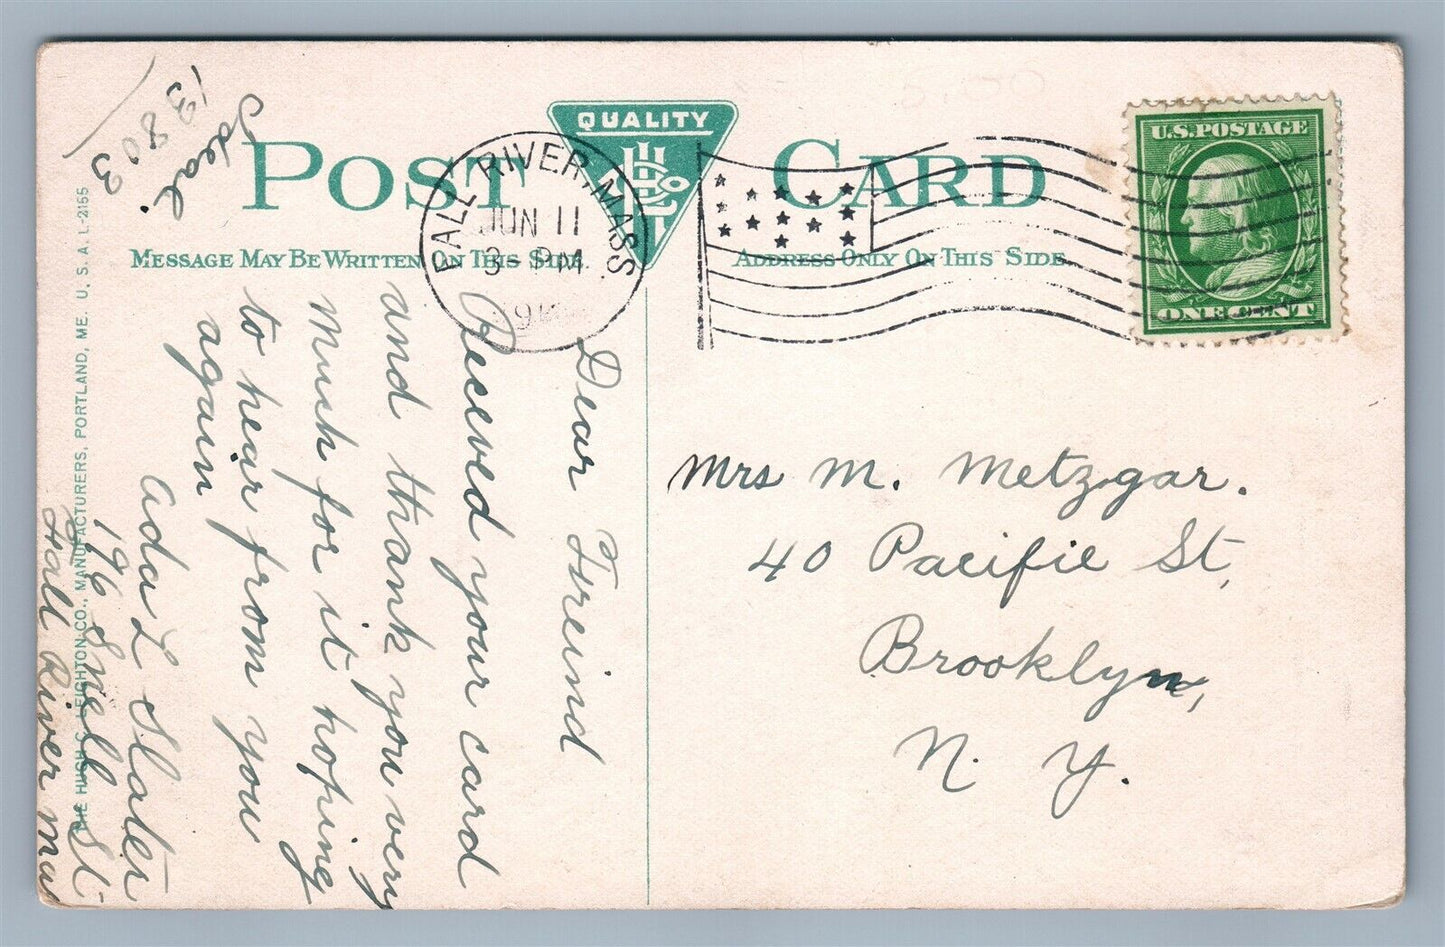 POST CARD
QUALITY
MESSAGE MAY BE WRITTEN ON THIS SIDE.
ADDRESS ONLY ON THIS SIDE
FALL RIVER, MASS.
JUN 11
3-PM
U.S. POSTAGE
ONE CENT
Ideal.
13803
Dear Freind
Received your card
and thank you very
much for it hoping
to hear from you
again
Ada L Slater
196 Snell St
Fall River Mas
Mrs M. Metzgar.
40 Pacific St,
Brooklyn,
N. Y.
THE HUGH C. LEIGHTON CO., MANUFACTURERS, PORTLAND, ME. U. S. A. L-2155